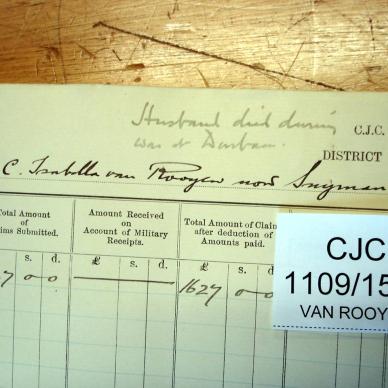 Husband died during
war at Durban.
C.J.C.
DISTRICT
C. Isabella van Rooyen now Snyman
Total Amount of Claims Submitted.
Amount Received on Account of Military Receipts.
Total Amount of Claim after deduction of Amounts paid.
s. d.
£ s. d.
£ s. d.
7 0 0
1627 0 0
CJC
1109/15
VAN ROOY